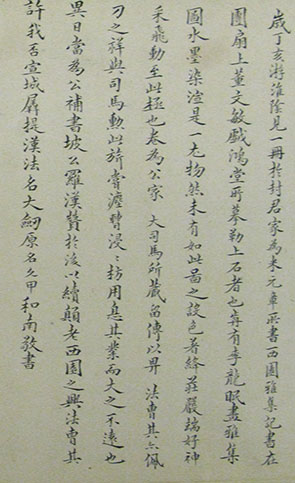 歲丁亥游淮陰見一冊於封君家為米元章所書西園雅集記書在
團扇上董文敏戲鴻堂所摹勒上石者也再有李龍眠畫雅集
圖水墨染渲是一尤物然未有如此圖之設色著絳莊嚴端好神
采飛動至此極也卷為公家 大司馬所藏留傳以畀 法曹其上佩
刀之祥與司馬勲此旂嘗瀝臂浸〻枋用息其業而大之不遠也
異日當為公補書坡公羅漢贊於後以續顛老西園之興法曹其
許我否宣城羼提漢法名大紉原名久甲和南敬書